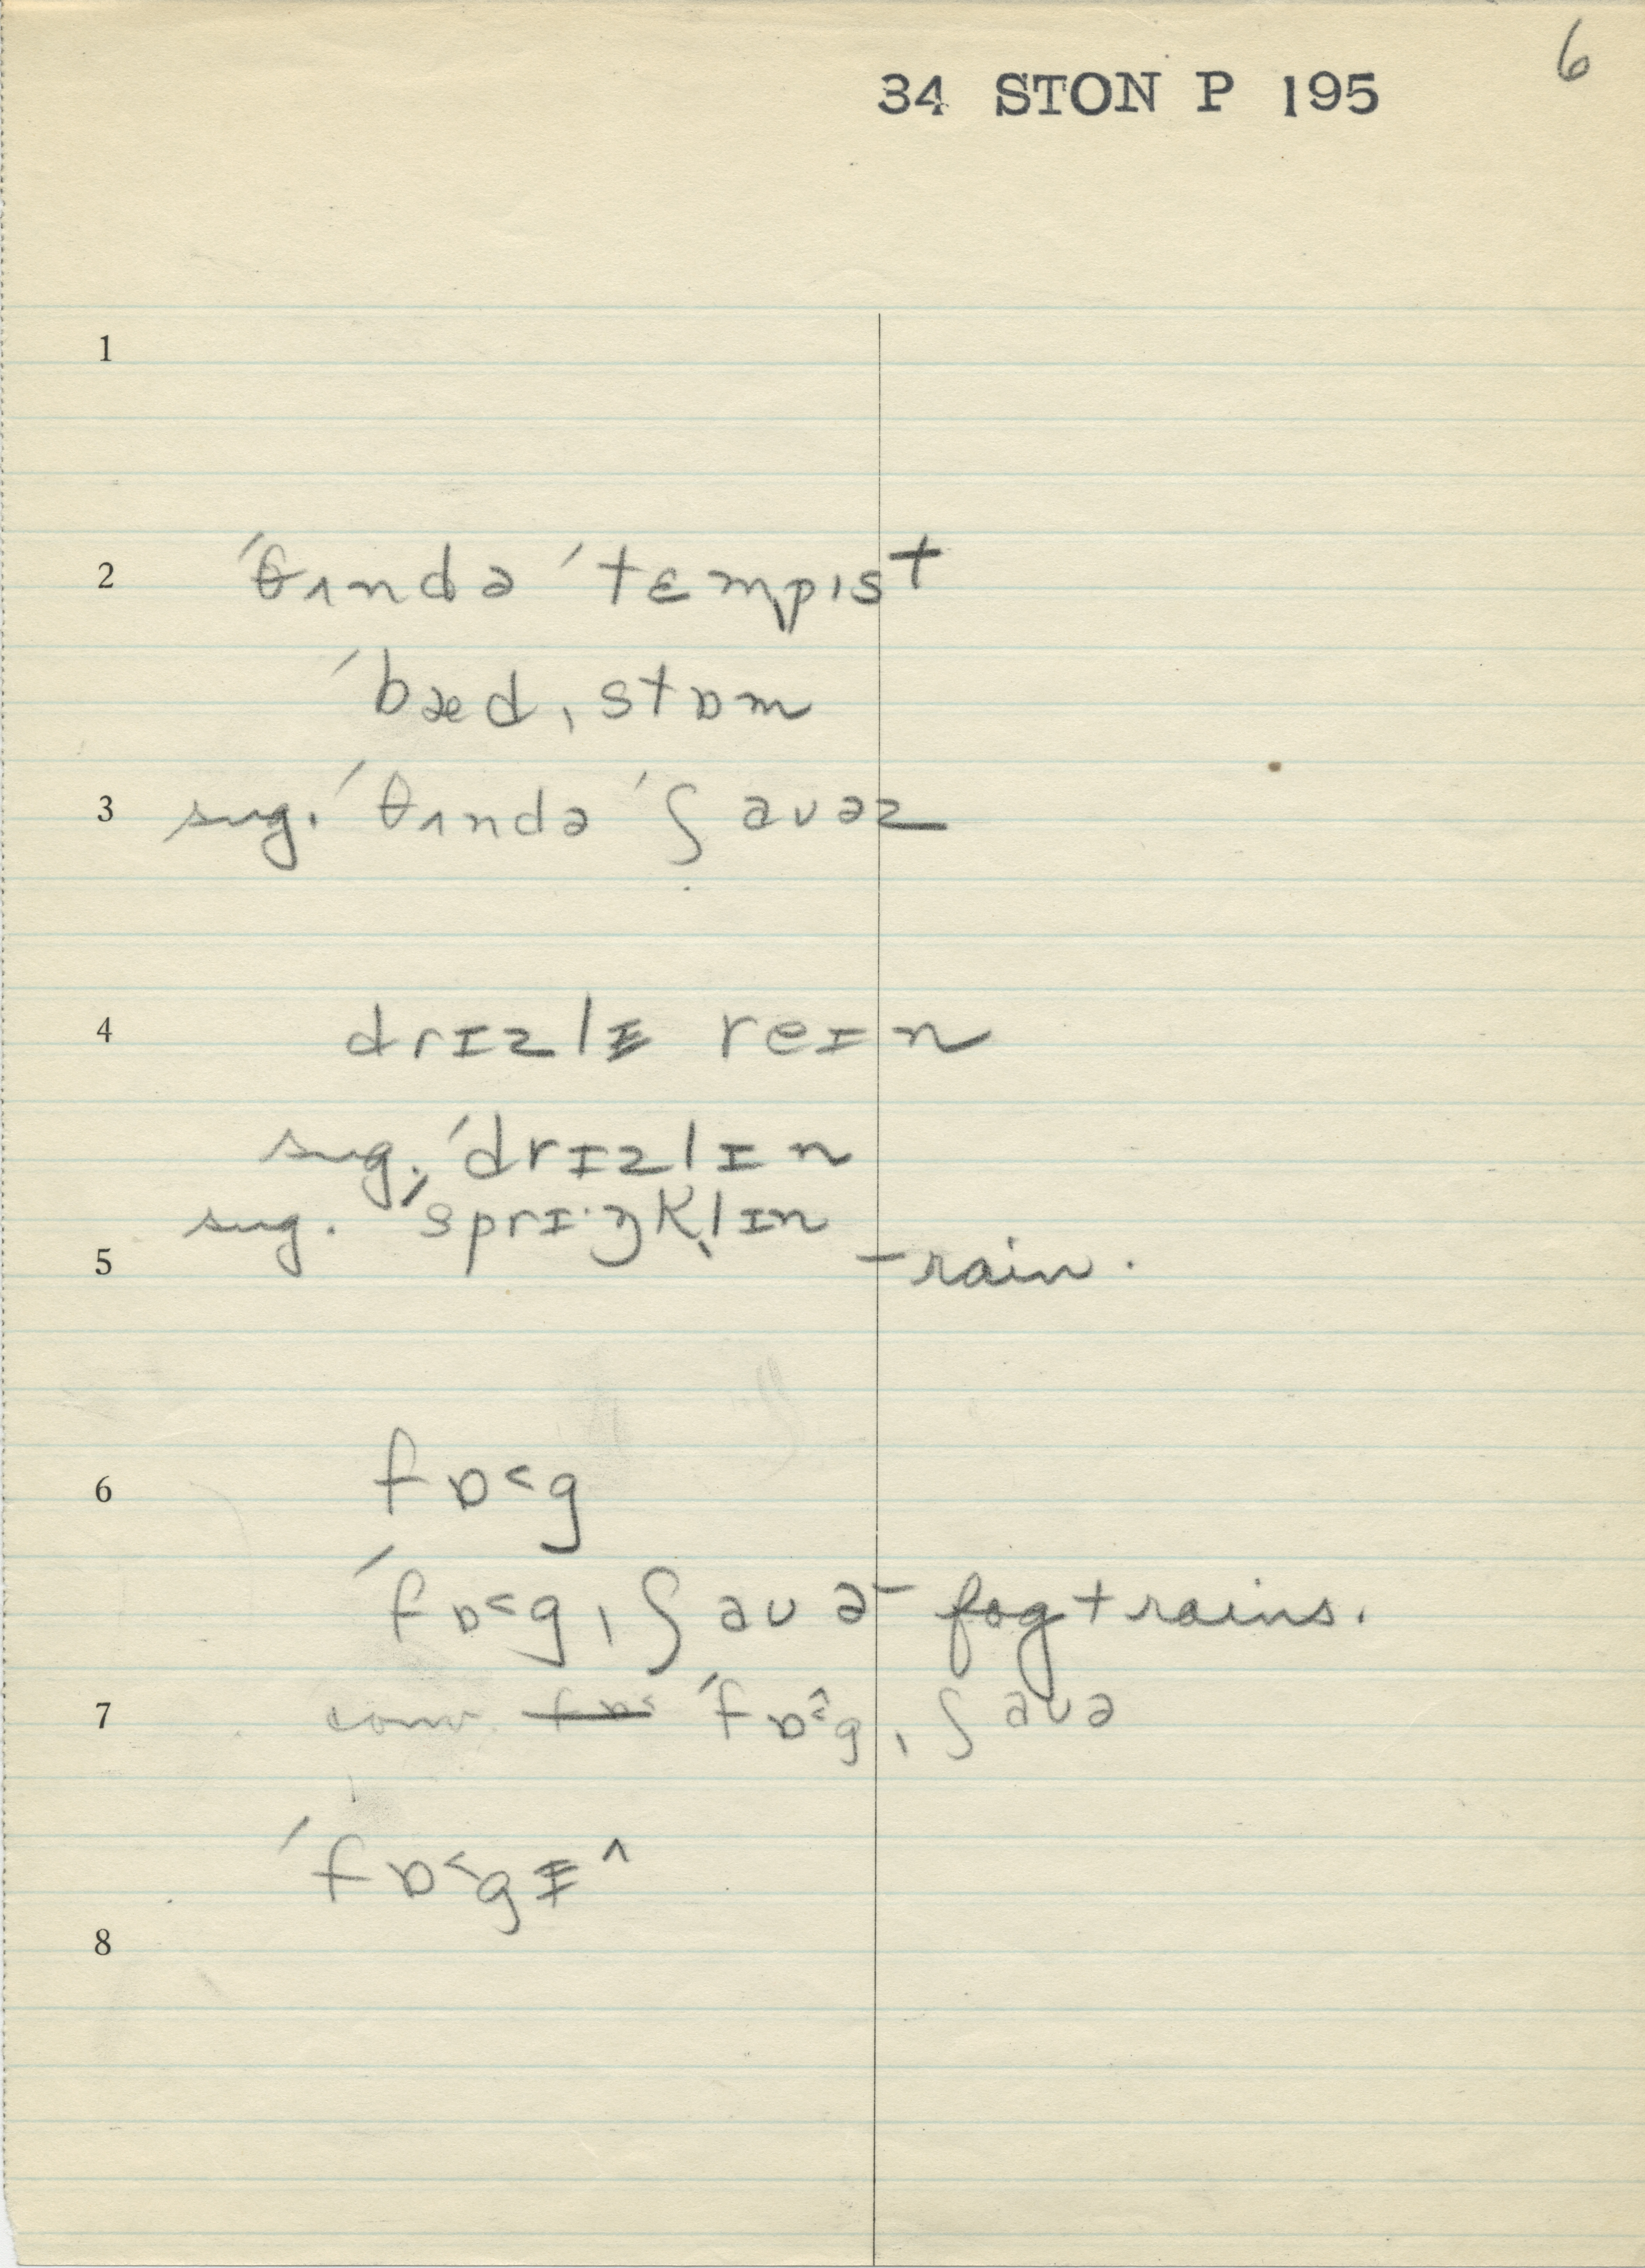 6
34 STON P 195
1
2 ˈθʌndə ˈtɛmpɪst
ˈbæd ˌstɒm
3 sug. ˈθʌndə ˈʃaʊəz
4 drɪzlɪ̵ reɪn
sug. ˈdrɪzlɪn
sug. ˈsprɪ·ŋkl̩ɪn
5 – rain.
6 fɒ˂g
ˈfɒ˂gˌʃaʊə – fog + rains.
7 conv. fɒ˂ ˈfɒ˂̂gˌʃaʊə
ˈfɒ˂gɪ̵^
8